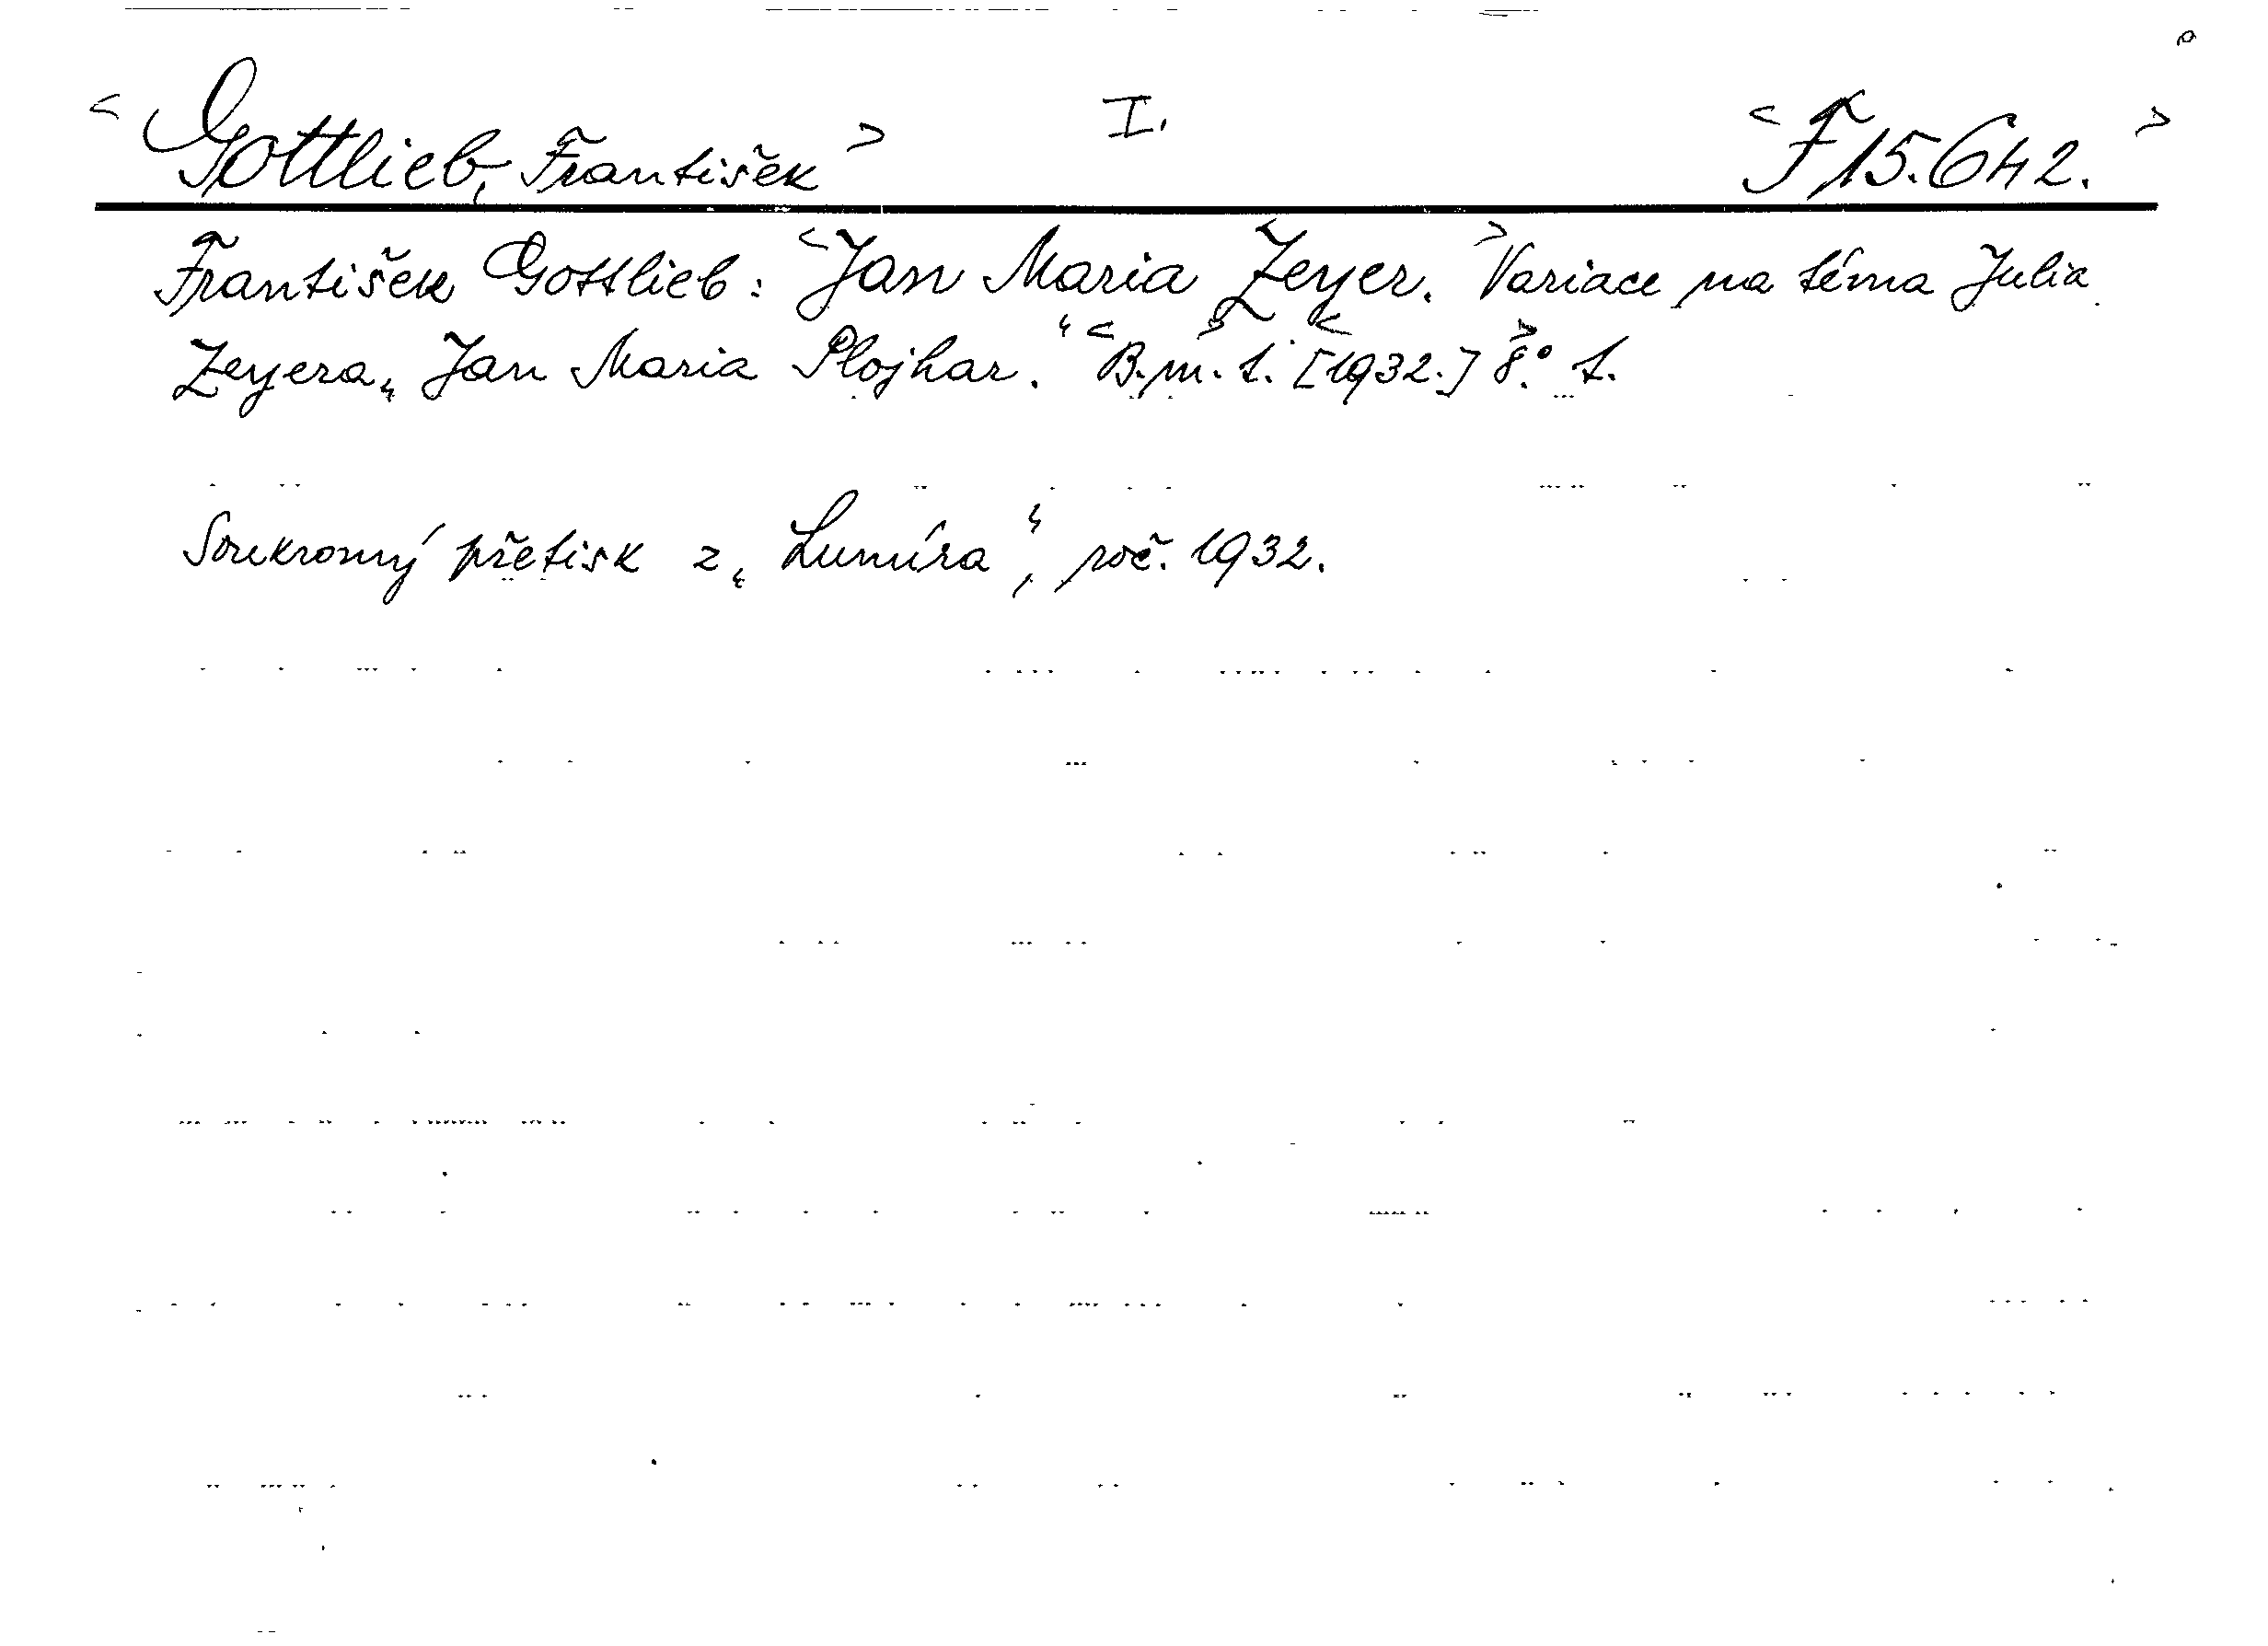 <Gottlieb, František> I. <F 15.642.>
František Gottlieb: <Jan Maria Zeyer.> Variace na téma Julia
Zeyera „Jan Maria Plojhar.“ <B.m.> t. <[1932.]> 8.° t.
Soukromý přetisk z „Lumíra“, roč. 1932.